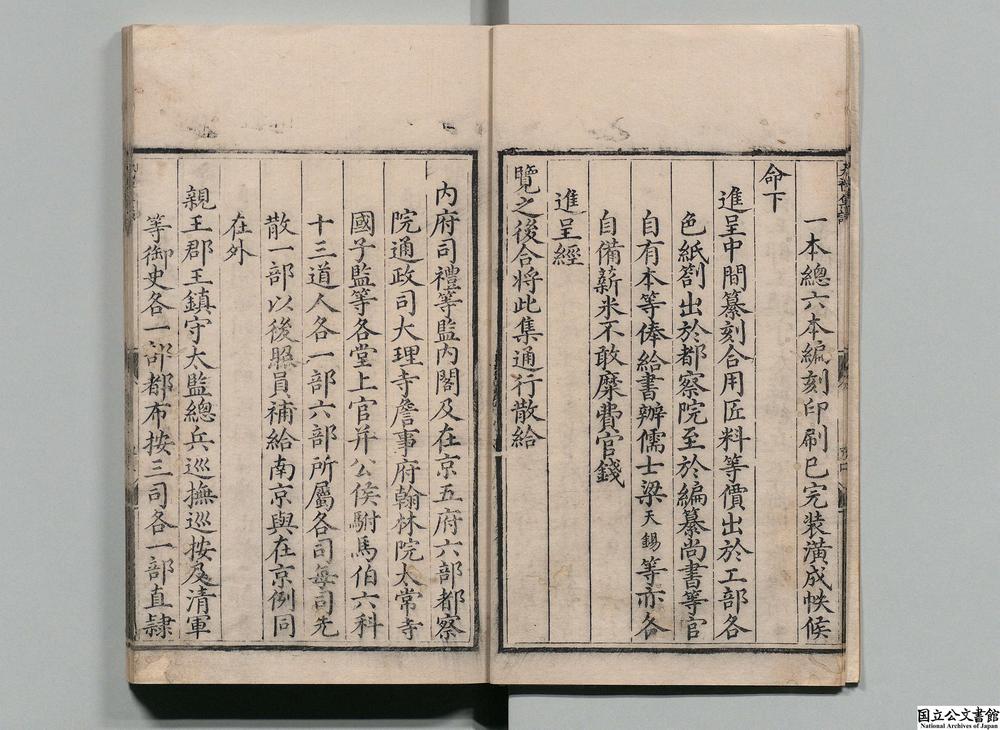 一本總六本編刻印刷已完裝潢成帙候
命下
進呈中間纂刻合用匠料等價出於工部各
色紙劄出於都察院至於編纂尚書等官
自有本等俸給書辦儒士梁天錫等亦各
自備薪米不敢糜費官錢
進呈經
覽之後合將此集通行散給
內府司禮等監內閣及在京五府六部都察
院通政司大理寺詹事府翰林院太常寺
國子監等各堂上官并公侯駙馬伯六科
十三道人各一部六部所屬各司每司先
散一部以後照員補給南京與在京例同
在外
親王郡王鎮守太監總兵巡撫巡按及清軍
等御史各一部都布按三司各一部直隸
国立公文書館
National Archives of Japan